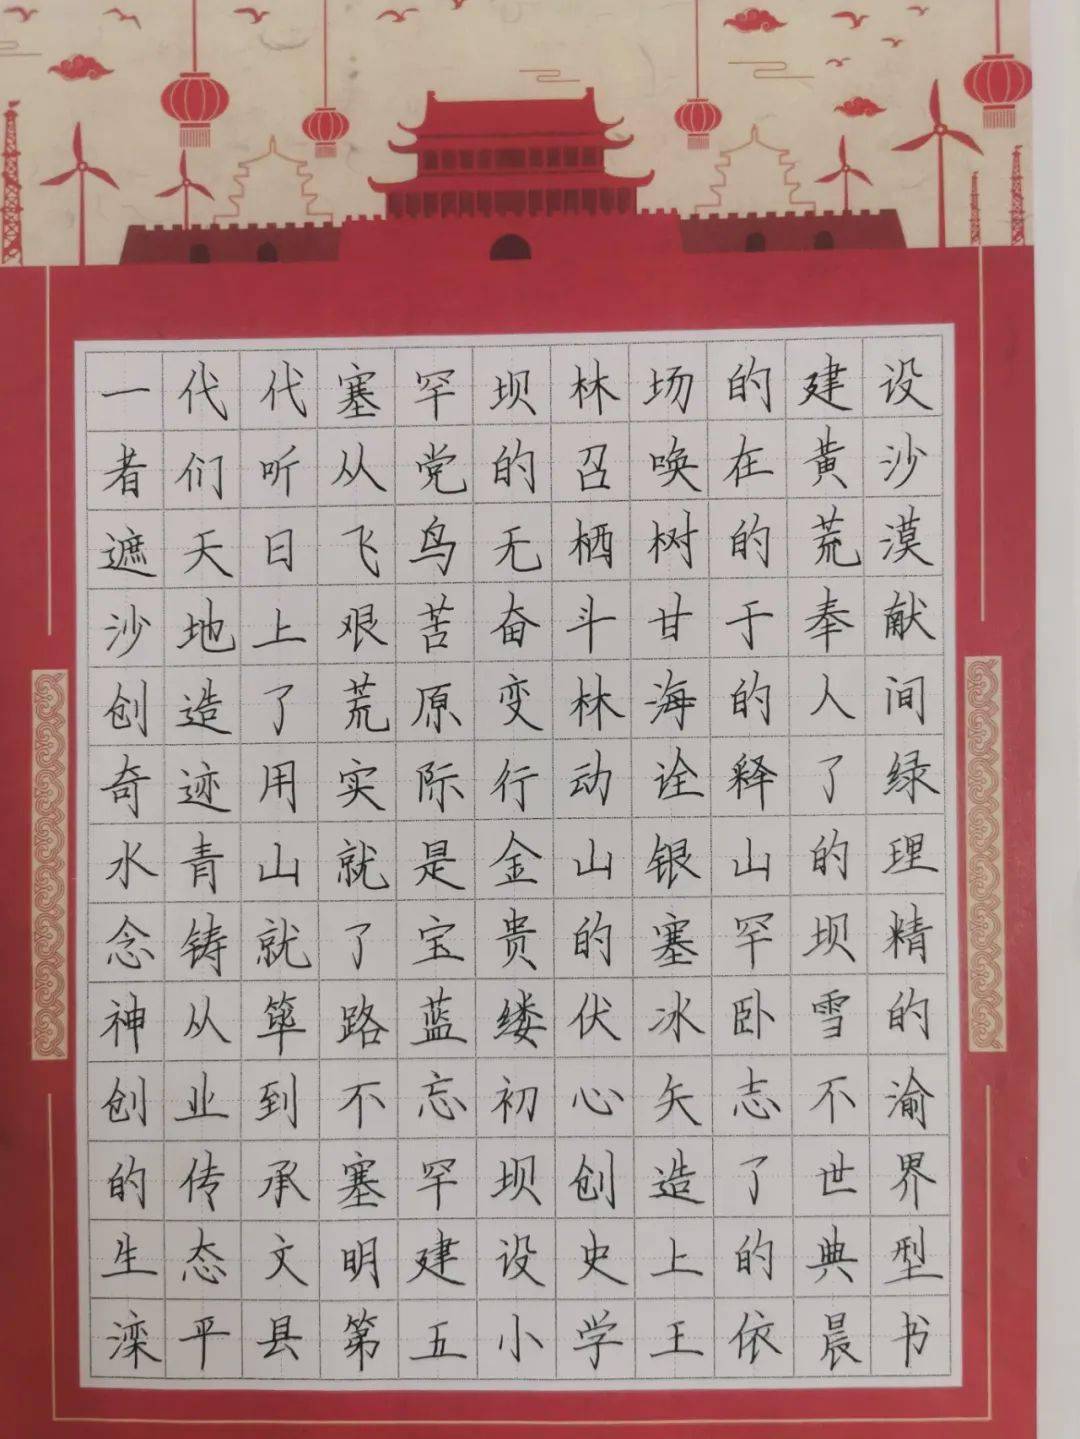 一代代塞罕坝林场的建设
者们听从党的召唤在黄沙
遮天日飞鸟无栖树的荒漠
沙地上艰苦奋斗甘于奉献
创造了荒原变林海的人间
奇迹用实际行动诠释了绿
水青山就是金山银山的理
念铸就了宝贵的塞罕坝精
神从筚路蓝缕伏冰卧雪的
创业到不忘初心矢志不渝
的传承塞罕坝创造了世界
生态文明建设史上的典型
滦平县第五小学王依晨书